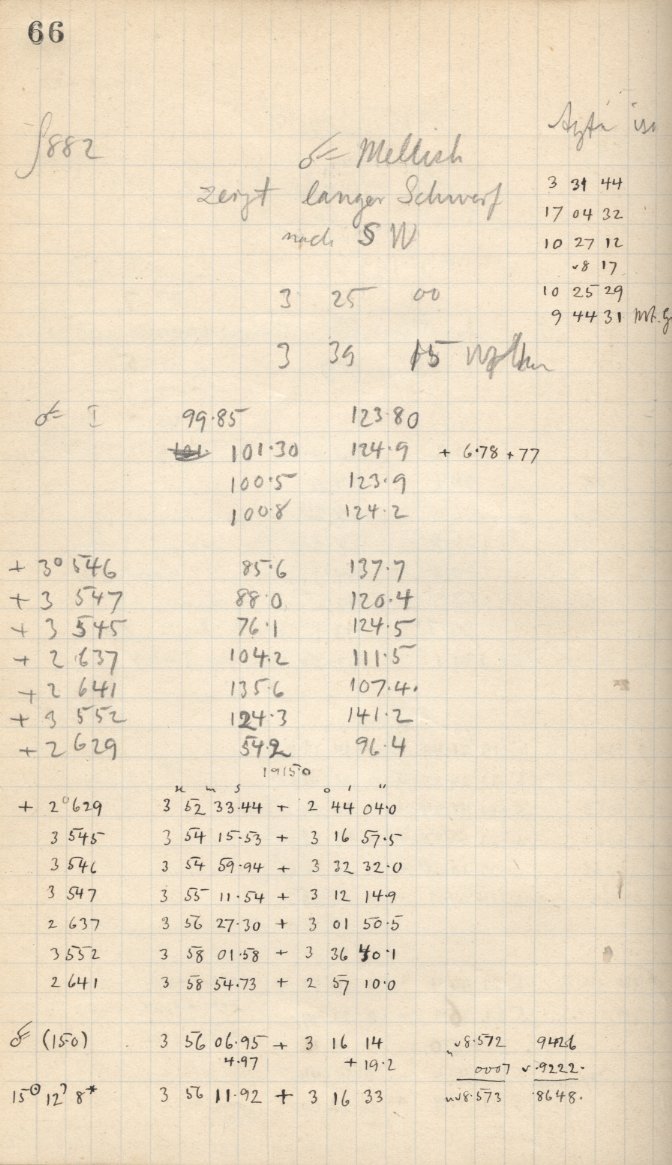 66
882
☄ Mellish
zeigt langer Schweif
nach S W
3 25 00
3 39 15
3 31 44
17 04 32
10 27 12
v8 17
10 25 29
9 44 31
☄ I 99.85 123.80
101. 101.30 124.9 + 6.78 + 77
100.5 123.9
100.8 124.2
+ 3° 546 85.6 137.7
+ 3 547 88.0 120.4
+ 3 545 76.1 124.5
+ 2 637 104.2 111.5
+ 2 641 135.6 107.4
+ 3 552 124.3 141.2
+ 2 629 54.2 96.4
1915.0
h m s ° ' "
+ 2° 629 3 52 33.44 + 2 44 04.0
3 545 3 54 15.53 + 3 16 57.5
3 546 3 54 59.94 + 3 32 32.0
3 547 3 55 11.54 + 3 12 14.9
2 637 3 56 27.30 + 3 01 50.5
3 552 3 58 01.58 + 3 36 40.1
2 641 3 58 54.73 + 2 57 10.0
☄ (15.0) 3 56 06.95 + 3 16 14 v8.572 9426
4.97 + 19.2 0007 v.9222
3 56 11.92 + 3 16 33 nv8.573 .8648